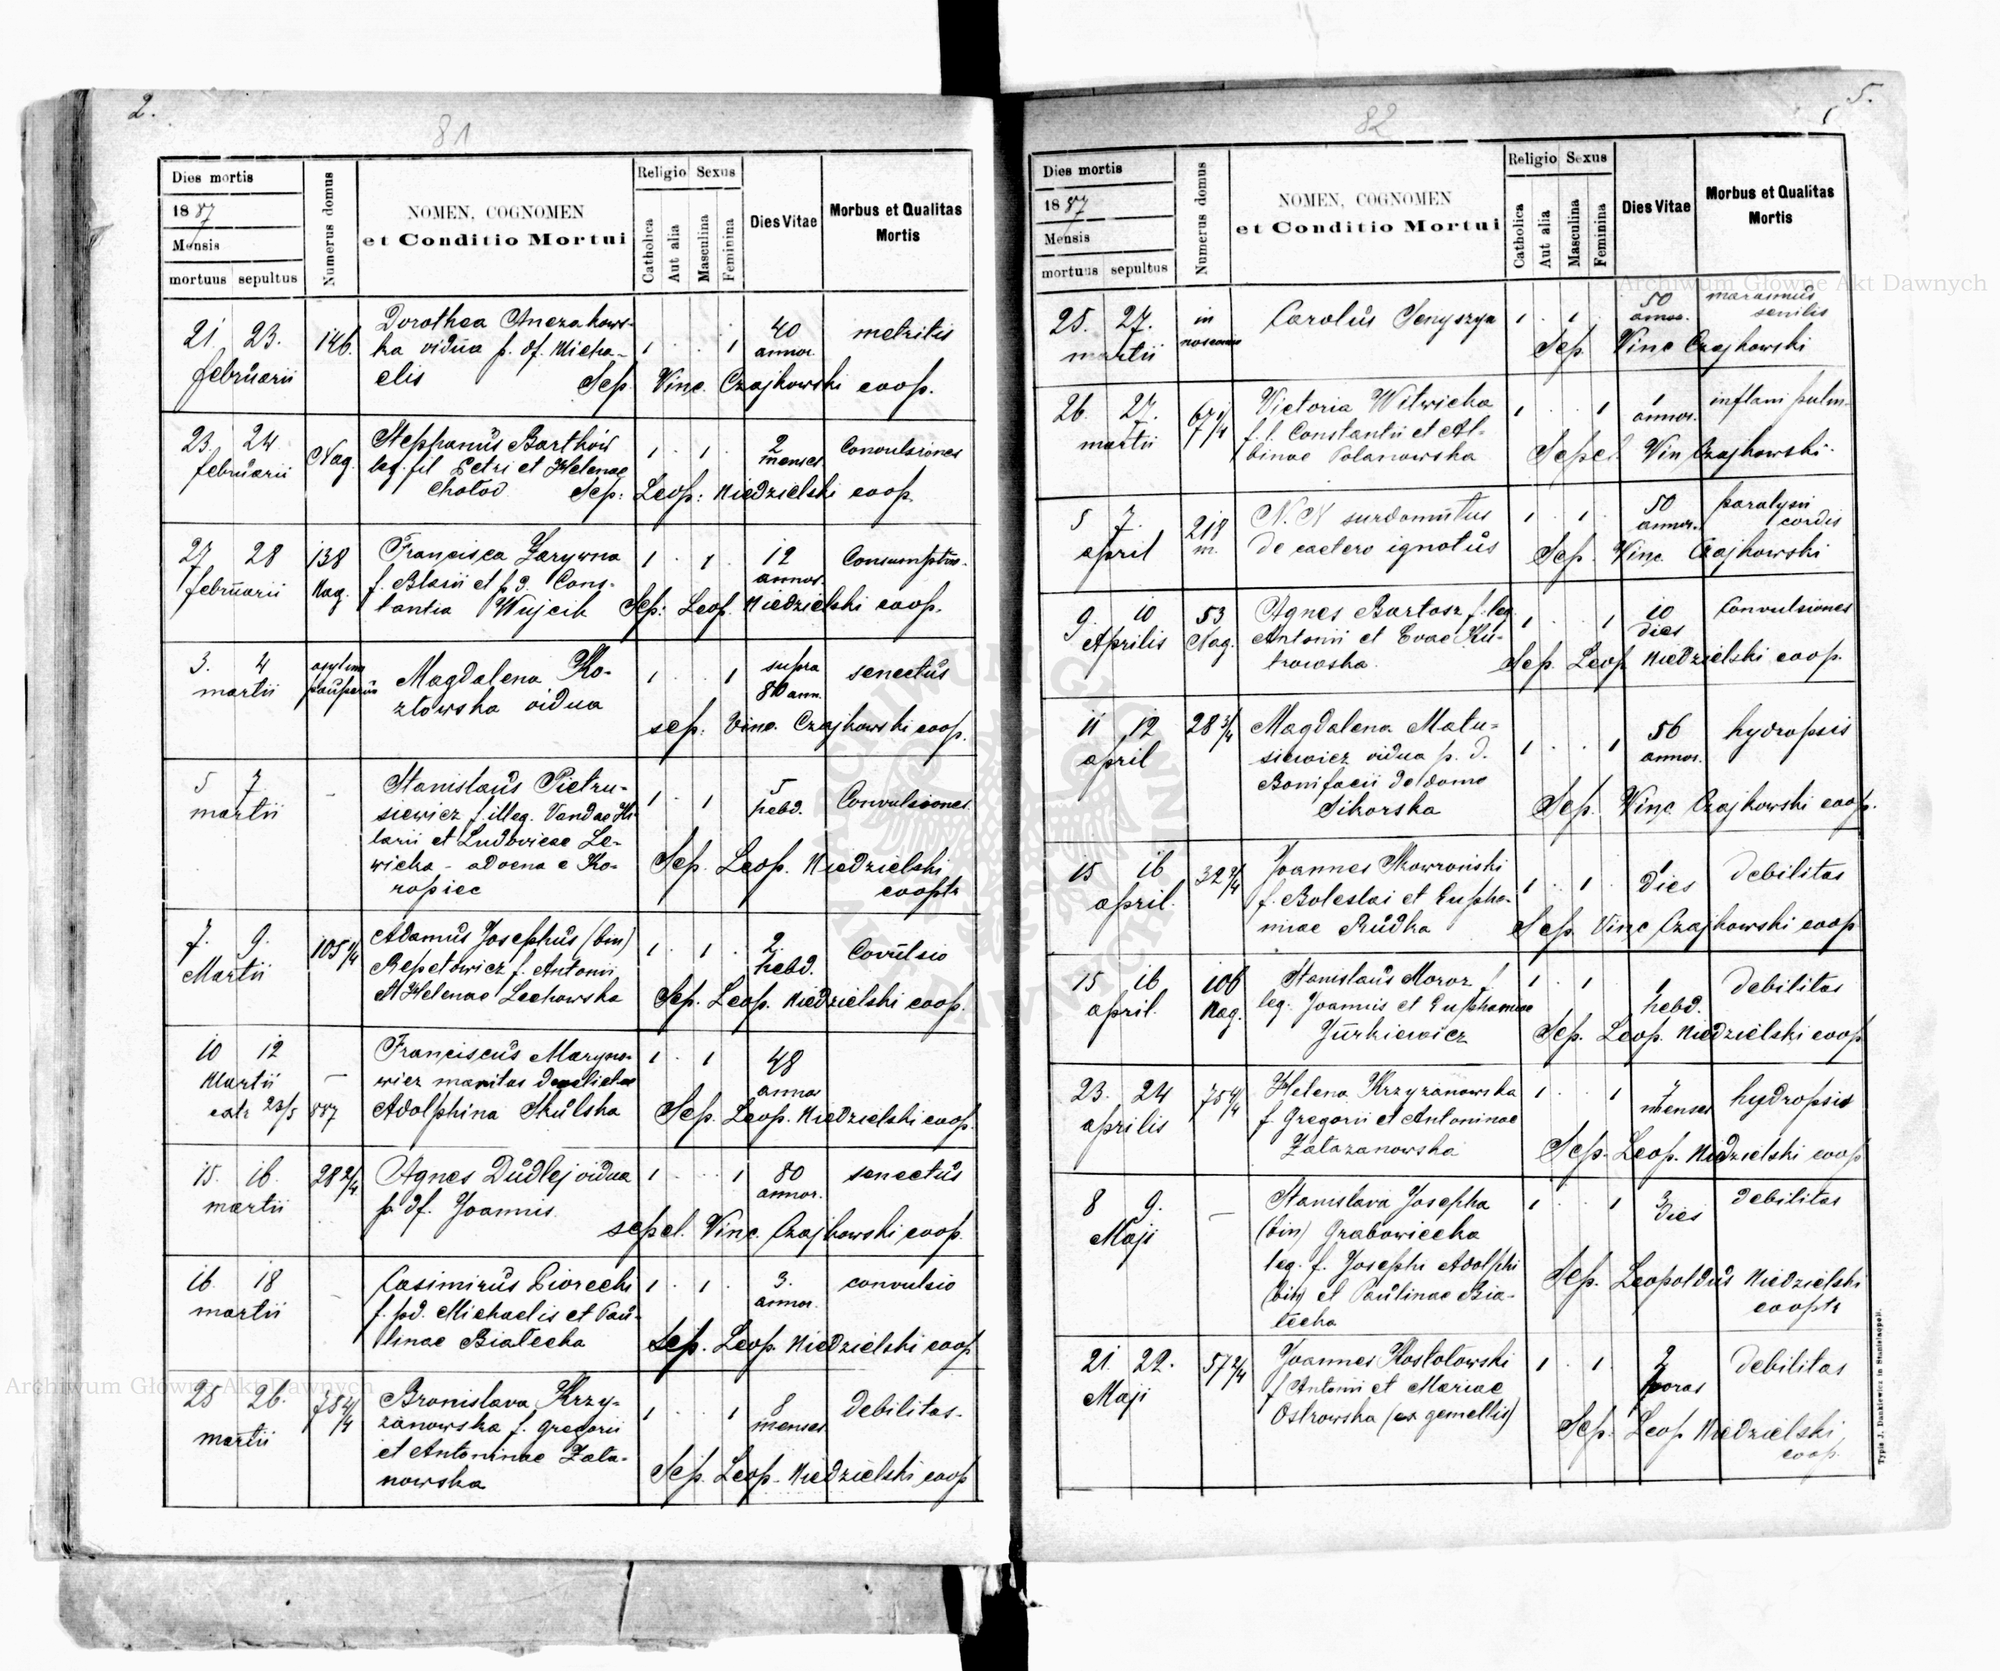 2.
81
Dies mortis
1887
Mensis
mortuus sepultus
Numerus domus
NOMEN, COGNOMEN
et Conditio Mortui
Religio Sexus
Catholica
Aut alia
Masculina
Feminina
Dies Vitae
Morbus et Qualitas
Mortis
21. 23. 146. Dorothea 40 metritis
ka vidua p. df. Micha- 1 . . 1 annor.
februarii elis Sep. Vinc. Czajkowski coop.
23. 24 Nag. Stephanus Barthów 1 . 1 . 2 Convulsiones
februarii leg. fil Petri et Helenae menses
Chołod Sep: Leop: Niedzielski coop.
27 28 138 Francisca Zarywna 1 . 1 . 12
februarii Nag. f. Blasii et p. d. Cons- annor.
tantia Wujcik Sep: Leop. Niedzielski coop.
3. 4 Magdalena Ko- 1 . . 1 supra senectus
martii złowska vidua 80 ann.
sep: Vinc. Czajkowski coop.
5 7 - Stanislaus Pietru- 1 . 1 5 Convulsiones
martii siewicz f. illeg. Vandae Hi- hebd.
larii et Ludovicae Le-
wicka - advena e Ko- Sep. Leop. Niedzielski
ropiec
7. 9. 105 1/4 Adamus Josephus (bin) 1 . 1 . 2
Martii Repetowicz f. Antonii hebd.
et Helenae Lechowska Sep. Leop. Niedzielski coop.
10 12 - Franciscus 1 . 1 48
Martii maritus annor
23/5 887 Adolphina Skulska Sep. Leop. Niedzielski coop.
15. 16. 28 2/4 Agnes Dudlej vidua 1 . . 1 80 senectus
martii p. df. Joannis annor.
sepel. Vinc. Czajkowski coop.
16 18 - Casimirus Piorecki 1 . 1 . 3. convulsio
martii f. pd. Michaelis et Pau- annor.
linae Białecka Sep. Leop. Niedzielski coop
25 26. 75 4/4 Bronislava Krzy- 1 . . 1 8 Debilitas.
martii żanowska f. Gregorii menses
et Antoninae Zała-
nowska Sep. Leop. Niedzielski coop
5.
82
Dies mortis
1887
Mensis
mortuus sepultus
Numerus domus
NOMEN, COGNOMEN
et Conditio Mortui
Religio Sexus
Catholica
Aut alia
Masculina
Feminina
Dies Vitae
Morbus et Qualitas
Mortis
25. 27. in Carolus Senyszyn 1 . 1 . 50 marasmus
martii annor. senilis
Sep. Vinc Czajkowski
26. 27. Victoria Witwicka 1 . . 1 1 inflam pulm.
martii f. l. Constantii et Al- annor.
binae Polanowska Sepel. Vin Czajkowski.
5 7. 218 N. N surdomutus 1 . 1 . 50 paralysis
april m. de caetero ignotus annor. cordis
Sep. Vinc. Czajkowski
9. 10 53 Agnes Bartosz f. leg. 1 . . 1 10 Convulsiones
Aprilis Nag. Antonii et Evae Ku- dies
trowska. Sep. Leop. Niedzielski coop.
11 12 28 3/4 Magdalena Matu- 1 . . 1 56 hydropsis
april siewicz vidua p. d. annor.
Bonifacii de domo
Sikorska Sep. Vinc. Czajkowski coop.
15 16 32 Joannes Skowroński 1 . 1 . 1 Debilitas
april. f. Boleslai et Eupho- dies
miae Rudka Sep. Vinc Czajkowski coop
15 16 106 Stanislaus Moroz f. 1 . 1 . 1 Debilitas
april. Nag. leg. Joannis et Euphemiae hebd.
Jurkiewicz Sep. Leop. Niedzielski coop
23. 24 75 4/4 Helena Krzyzanowska 1 . . 1 7 hydropsis
aprilis f. Gregorii et Antoninae menses
Sep. Leop. Niedzielski coop
8 9. - Stanislava Josepha 1 . . 1 3 Debilitas
Maji (bin) Grabowiecka dies
leg. f. Josephi Adolphi Sep. Leopoldus Niedzielski
(bin) et Paulinae Bia-
łecka
21. 22. 57 2/4 Joannes Kostołowski 1 . 1 . 2 Debilitas
Maji f. Antonii et Mariae horas
Ostrowska (ex gemellis) Sep. Leop Niedzielski
coop.
Typis J. Dankiewicz in Stanislaopoli.
Archiwum Główne Akt Dawnych
Archiwum Główne Akt Dawnych
ARCHIWUM GŁÓWNE AKT DAWNYCH